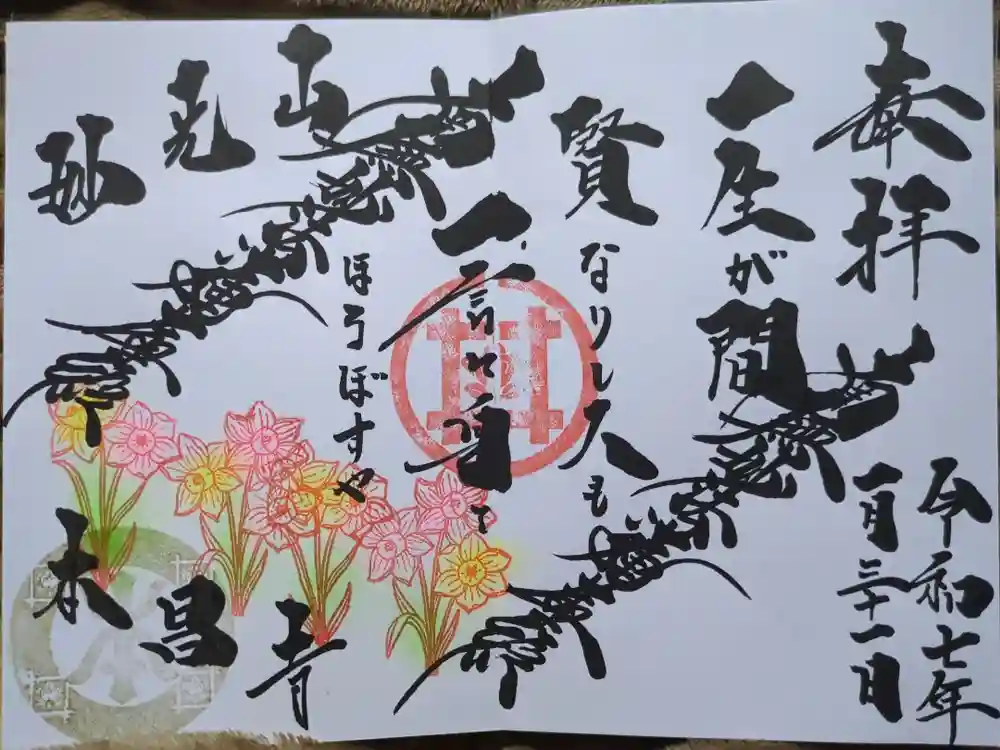 奉拝
一生が間
賢なりし人も
一言に身を
ほろぼすや
令和七年
一月三十一日
妙光山
本昌寺